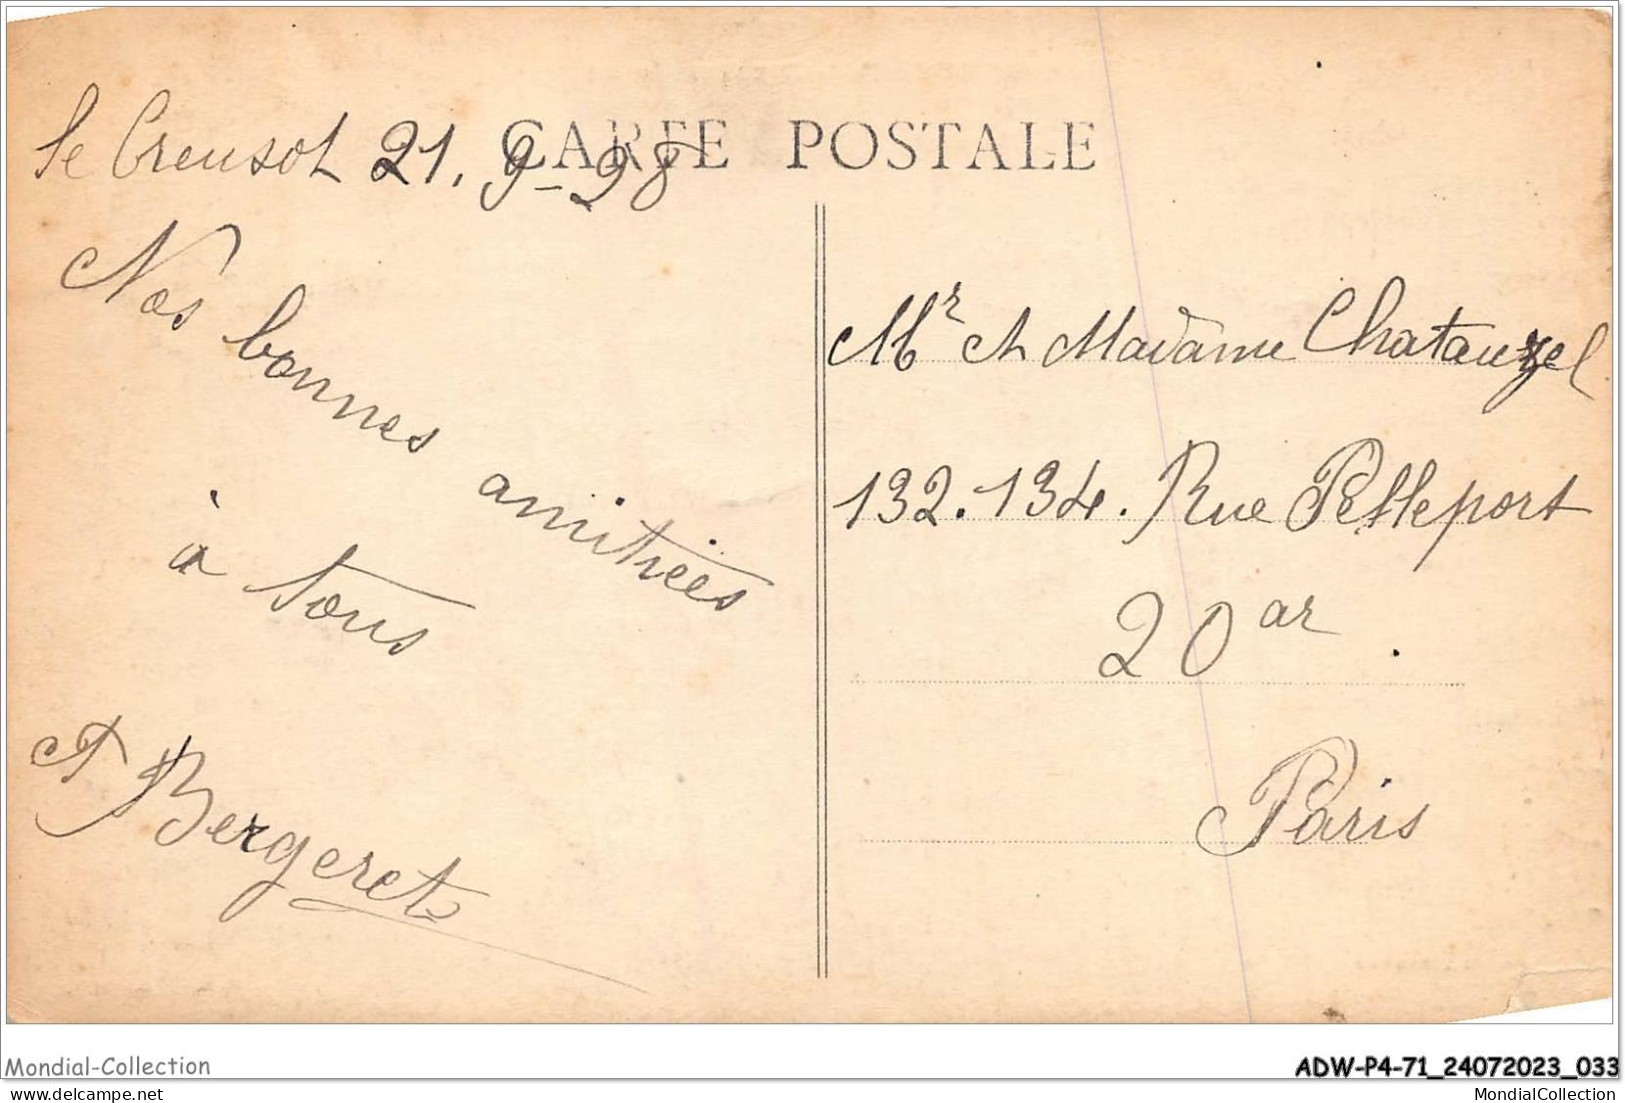 CARTE POSTALE
le Creusot 21. 9-28
Nos bonnes
amitiées
à tous
A Bergeret
Mr et Madame Chatauzel
132.134. Rue Pelleport
20 ar
Paris
Mondial-Collection
ADW-P4-71_24072023_033
MondialCollection